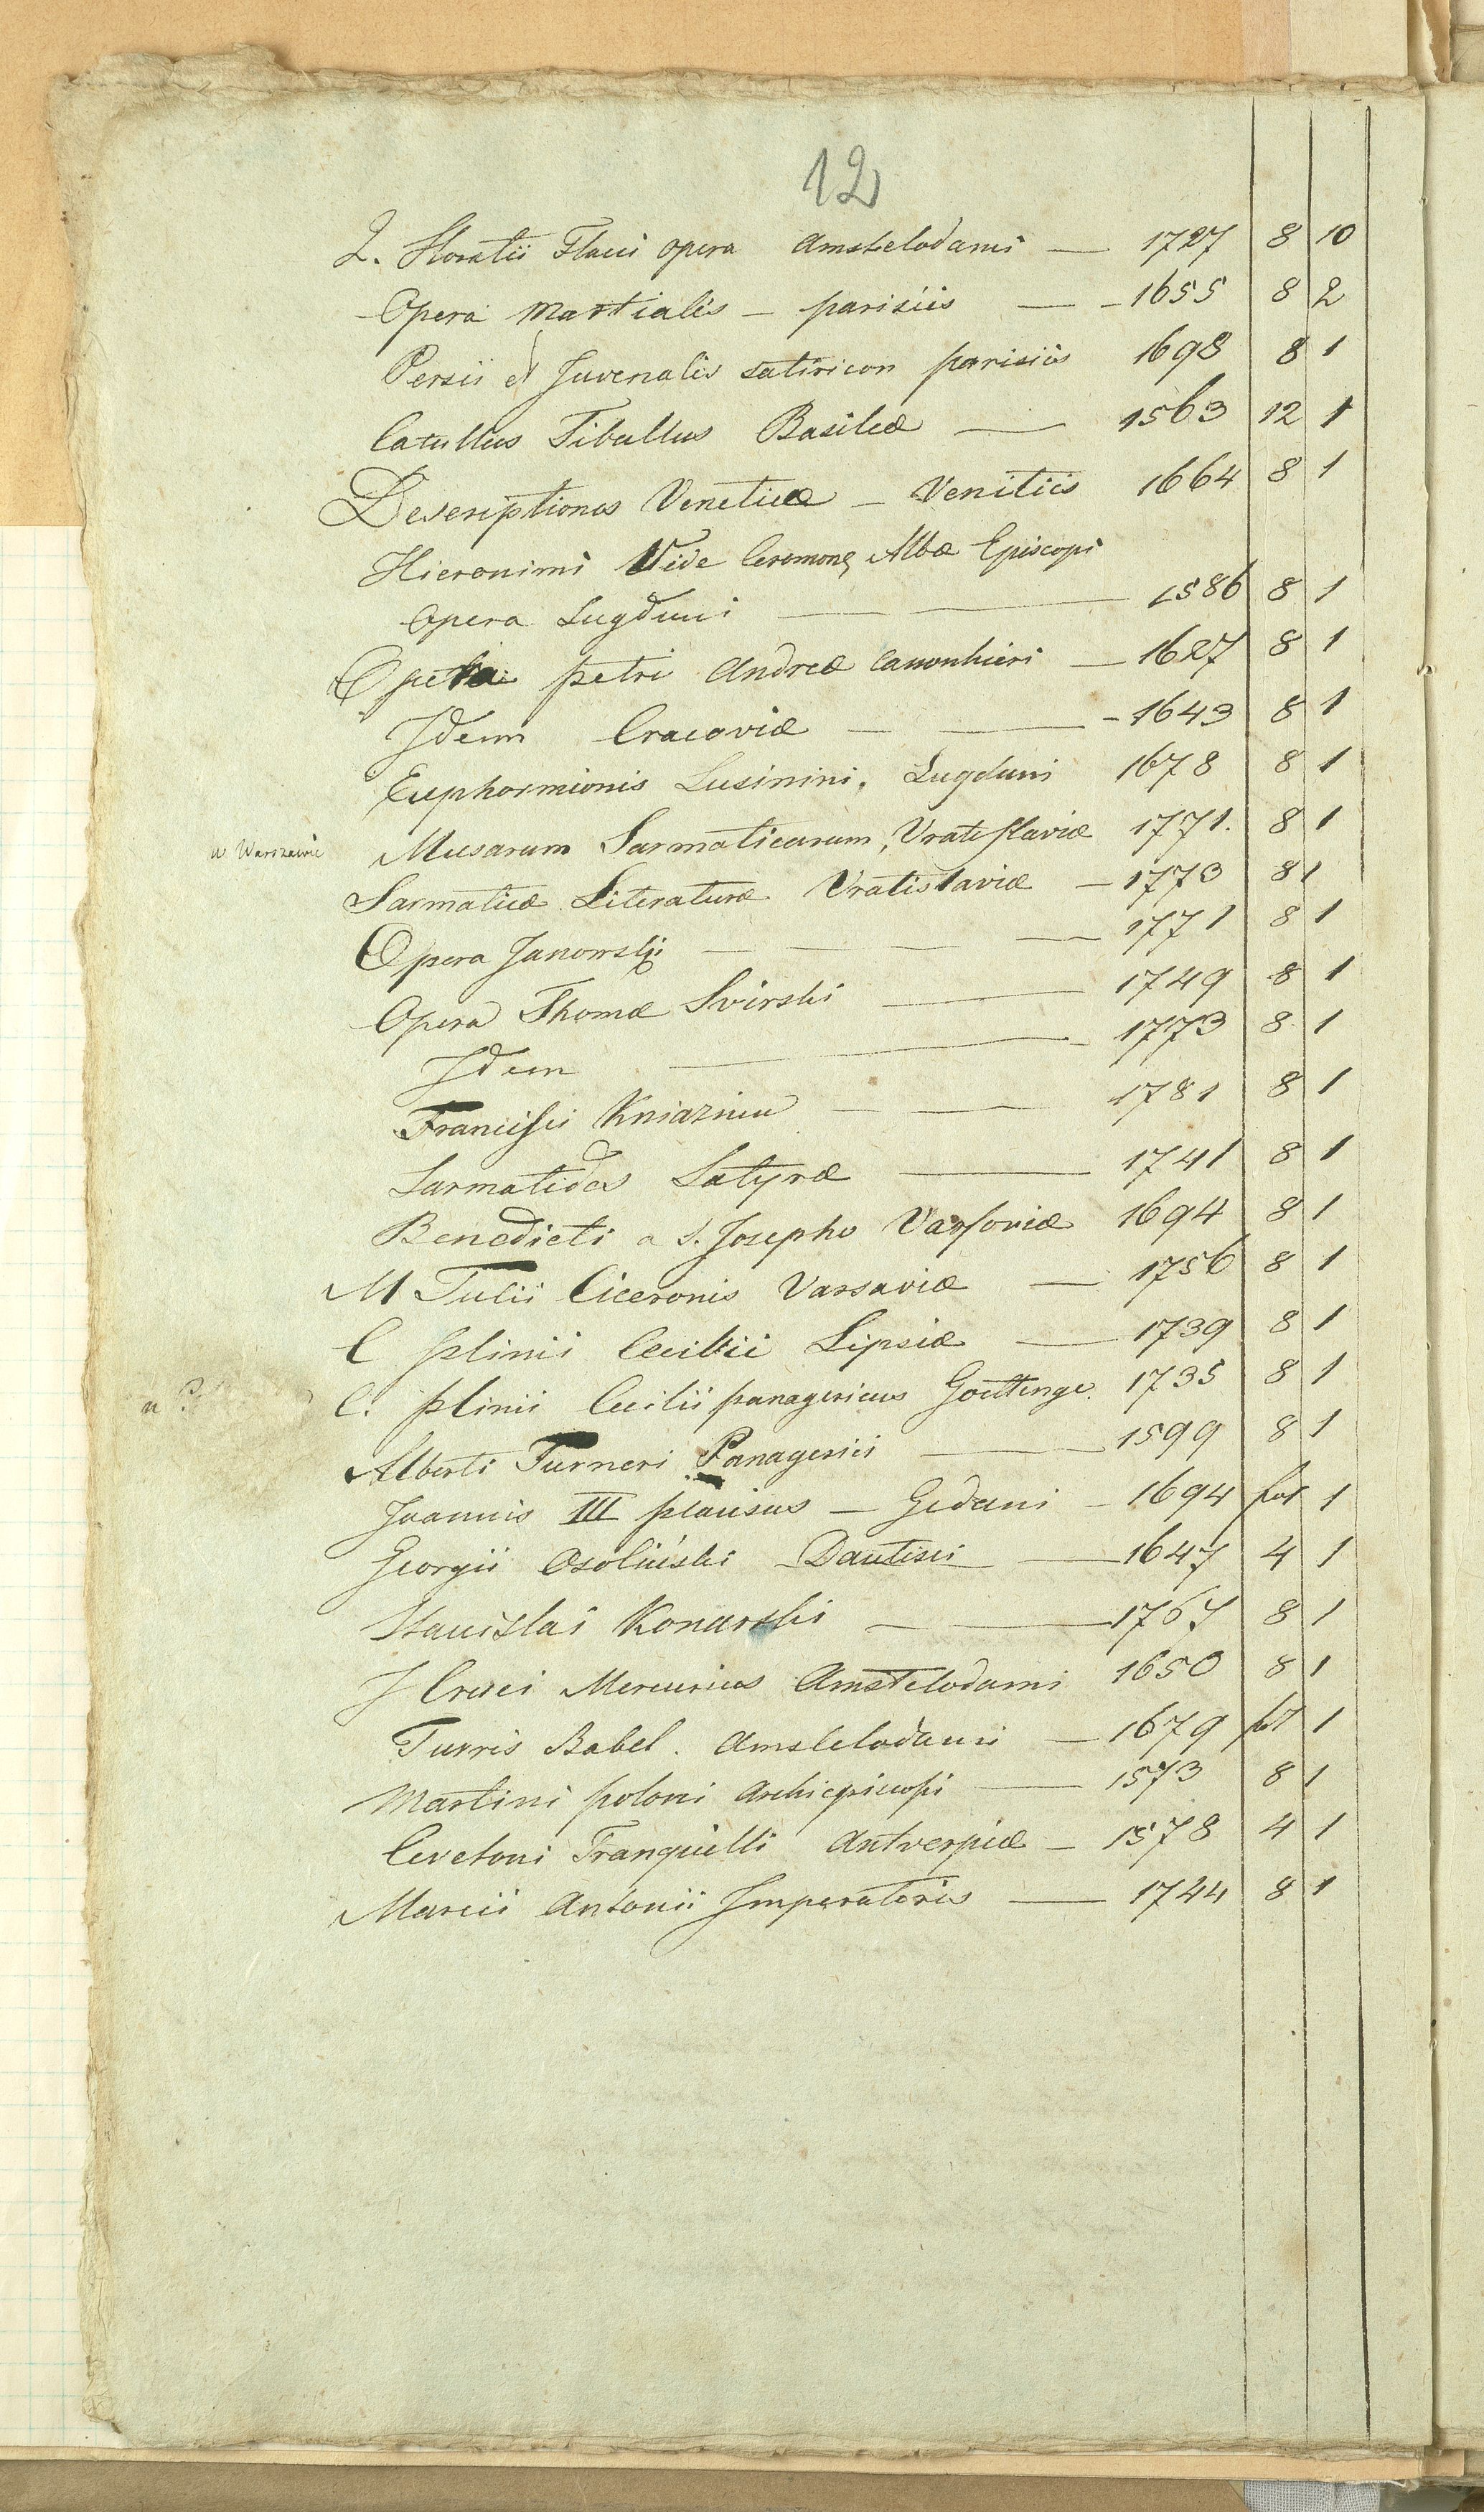 12
Q. Horatii Flacci opera Amstelodami — 1727 8 10
Opera Martialis — parisiis — — 1655 8 2
Persii et Juvenalis satiricon parisiis 1698 8 1
Catullus Tibullus Basileæ — 1563 12 1
Descriptiones Veneticæ — Venitiis 1664 8 1
Hieronimi Vide Ceremonę Albæ Episcopi
Opera Lugduni — — 1586 8 1
Opera petri Andreæ Canonhieri — 1627 8 1
Idem Cracoviæ — — - 1643 8 1
Euphormionis Lusinini. Lugduni 1678 8 1
w Warszawie Musarum Sarmaticarum, Vratislaviæ 1771. 8 1
Sarmaticæ Literaturæ Vratislaviæ — 1773 8 1
Opera Janowski — — — — 1771 8 1
Opera Thomæ Svirski — 1749 8 1
Idem — — 1773 8 1
Francisci Kniaznin — — 1781 8 1
Sarmatides Satyræ — 1741 8 1
Benedicti a S. Josepho Varsoviæ 1694 8 1
M Tulii Ciceronis Varsaviæ — 1756 8 1
C plinii Cecilii Lipsiæ — 1739 8 1
C. plinii Cecilii panagericus Goettinge. 1735 8 1
Alberti Turneri Panagerici — 1599 8 1
Joannis III plausus — Gedani — 1694 fol 1
Georgii Osoliński Dantisci — 1647 4 1
Stanislai Konarski — — 1767 8 1
J Cruci Mercurius Amstelodami 1650 8 1
Turris Babel. Amstelodami — 1679 fol 1
Martini poloni Archiepiscopi — 1573 8 1
Cevetoni Tranquilli Antverpiæ — 1578 4 1
Marcii Antonii Imperatoris — 1744 8 1